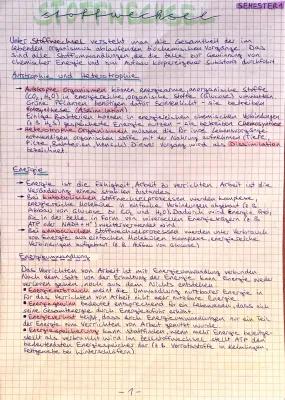 STOFFWECHSEL
SEMESTER 1
stoffwechsel
Unter Stoffwechsel versteht man die Gesamtheit der im
lebenden Organismus ablaufenden biochemischen Vorgänge. Das
sind alle Stoffumwandlungen, die die Zelle zur Gewinnung von
chemischer Energie und zum Aufbau körpereigener Substanz durchführt
Autotrophie und Heterotrophie
- Autotrophe Organismen können energiearme, anorganische Stoffe
(CO2, H2O) in energiereiche, organische Stoffe (Glucose) umwandeln
Grüne Pflanzen benötigen dafür Sonnenlicht - sie betreiben
Fotosynthese (Assimilation)
Einige Bakterien können in energiereichen chemischen Verbindungen
(z.B. H2S) gespeicherte Energie nutzen - sie betreiben Chemosynthese
- Heterotrophe Organismen müssen die für ihre Lebensvorgänge
notwendigen organischen Stoffe mit der Nahrung aufnehmen (Tiere,
Pilze, Bakterien, Mensch). Dieser Vorgang wird als Dissimilation
bezeichnet
Energie
→ Energie ist die Fähigkeit Arbeit zu verrichten. Arbeit ist die
Veränderung eines stabilen Zustandes
→ Bei katabolischen Stoffwechselprozessen werden komplexe,
energiereiche Moleküle in einfache Verbindungen abgebaut (z.B.
Abbau von Glucose zu CO2 und H2O). Dadurch wird Energie frei,
die in der Zelle in Form von universellen Energieträgern (z.B.
ATP oder NADH + H+) weiterverwendet wird.
→ Bei anabolischen Stoffwechselprozessen werden unter Verbrauch
von Energie aus einfachen Molekülen komplexe, energiereiche
Verbindungen aufgebaut (z.B. Aufbau von Glucose)
Energieumwandlung
Das Verrichten von Arbeit ist mit Energieumwandlung verbunden
Nach dem Satz von der Erhaltung der Energie kann Energie weder
verloren gehen, noch aus dem Nichts entstehen
Energieverbrauch meint die Umwandlung nutzbarer Energie in
für das Verrichten von Arbeit nicht mehr nutzbare Energie.
bedeutet entsprechend für ein Lebewesen, dass sich
seine Gesamtenergie durch Energiezufuhr erhöht.
Energieverlust heißt, dass durch Energieumwandlungen nur ein Teil
der Energie zum Verrichten von Arbeit genutzt wurde.
Energiespeicherung kann stattfinden, wenn mehr Energie bereitge-
stellt als verbraucht wird. Im Zellstoffwechsel stellt ATP den
bedeutendsten Energiespeicher dar (z.B. Vorratsstoffe in Keimlingen,
Fettgewebe bei Winterschläfern)
- 1 -